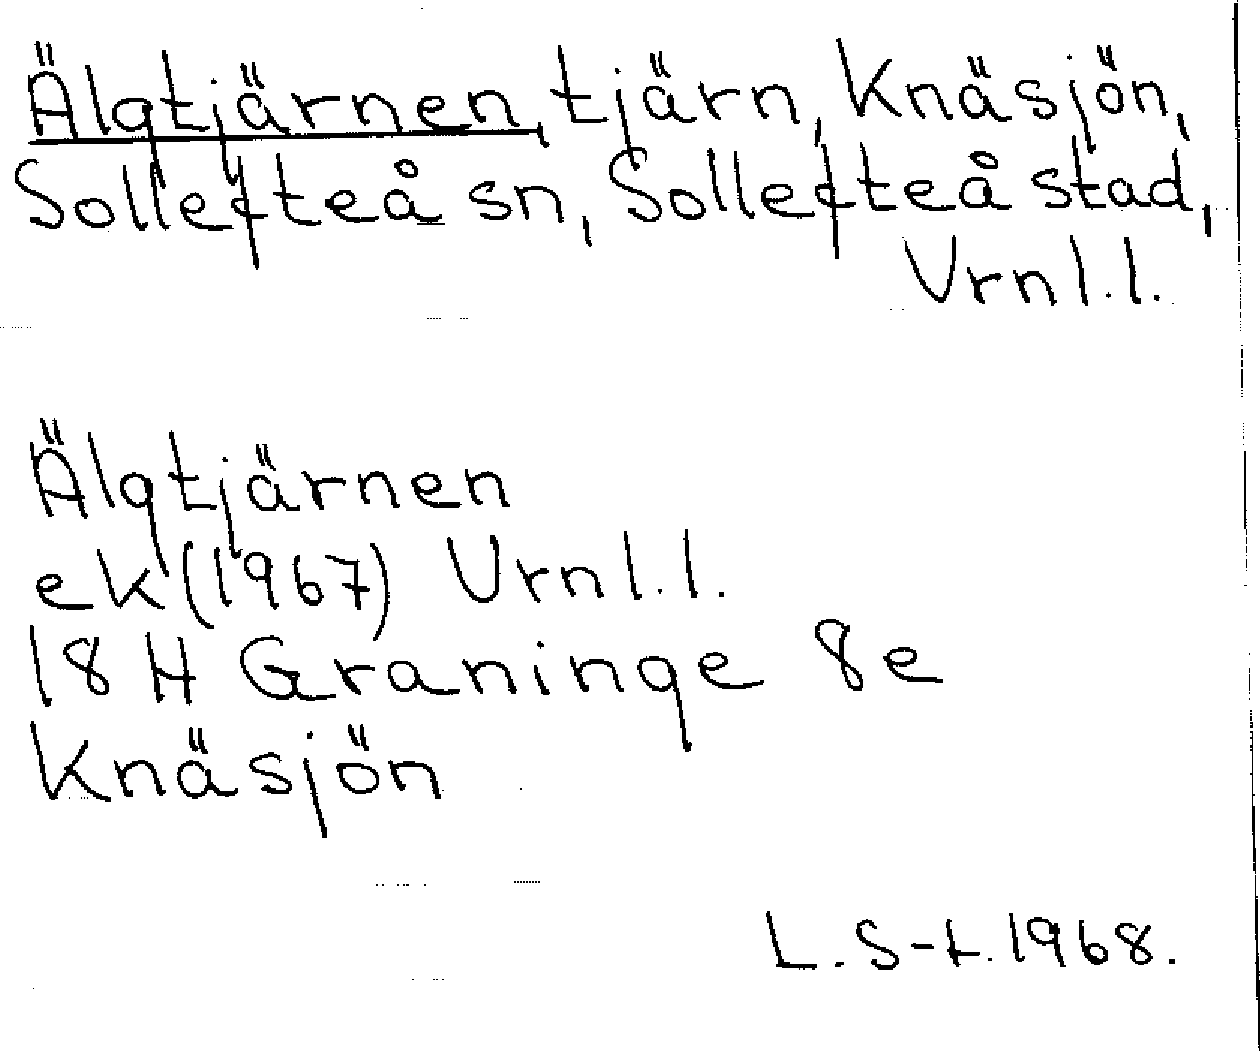 Älgtjärnen, tjärn, Knäsjön,
Sollefteå sn, Sollefteå stad,
Vrnl.l.
Älgtjärnen
ek (1967) Vrnl.l.
18 H Graninge 8e
Knäsjön
L. S-t. 1968.